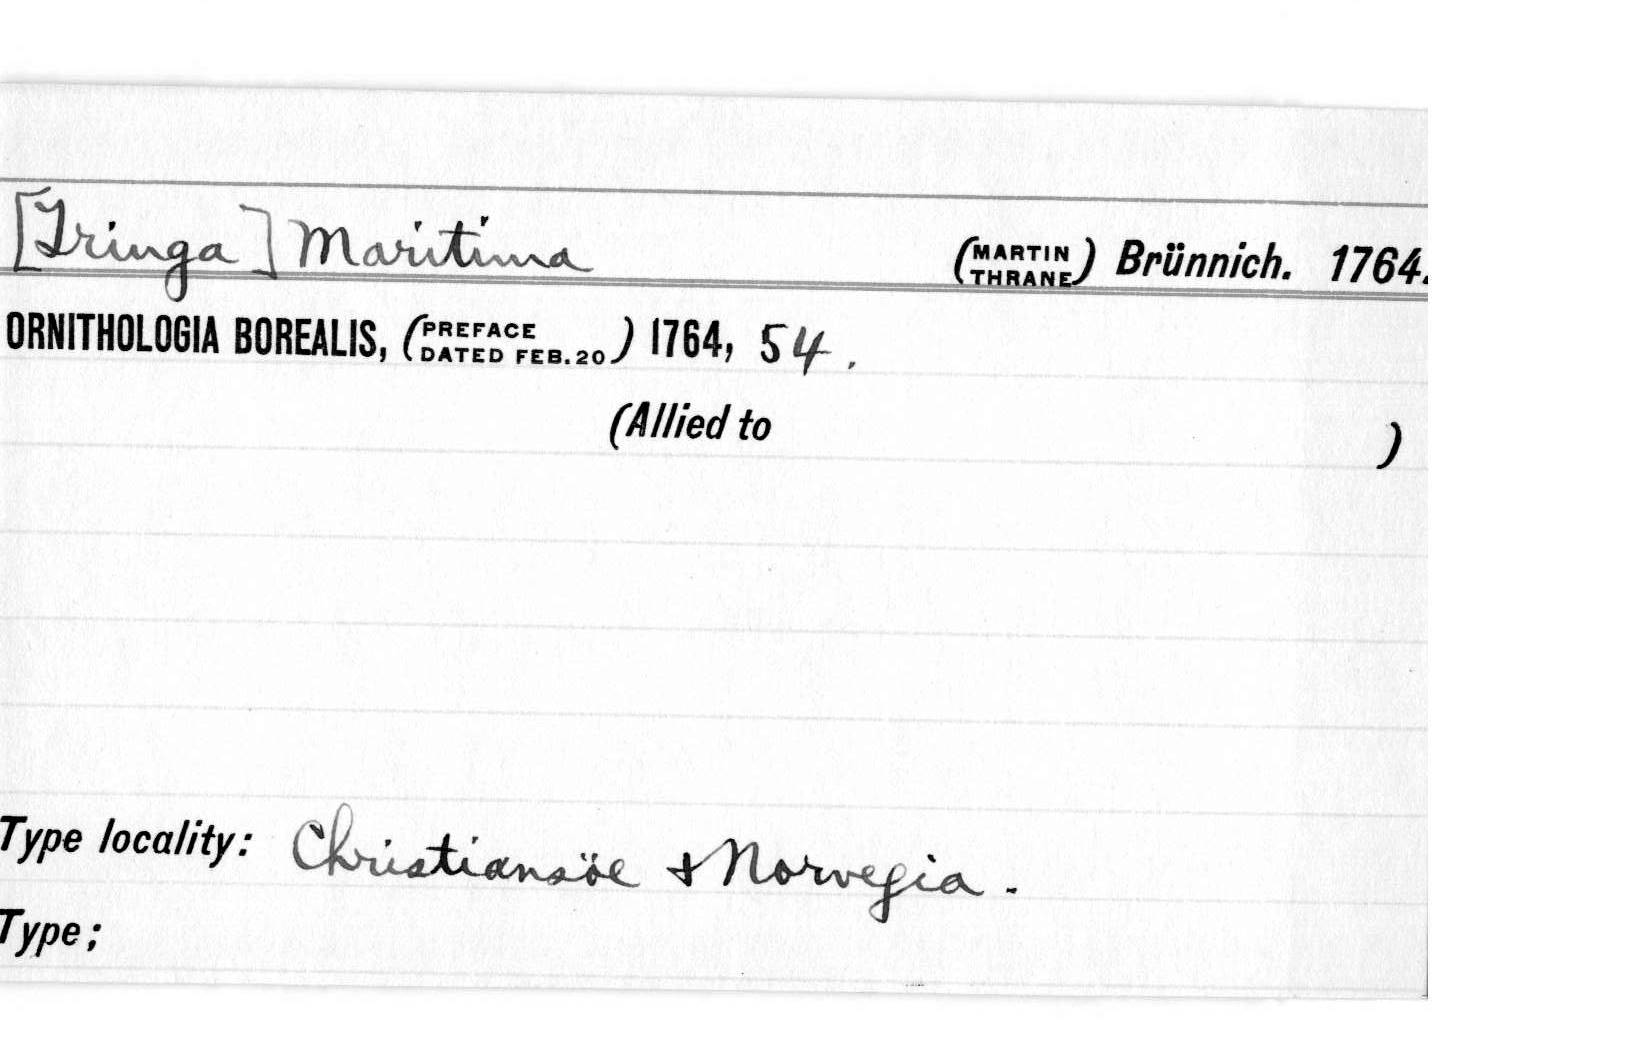 [Tringa] Maritima (MARTIN THRANE) Brünnich. 1764.
ORNITHOLOGIA BOREALIS, (PREFACE DATED FEB. 20) 1764, 54.
(Allied to )
Type locality: Christiansöe & Norvegia.
Type;